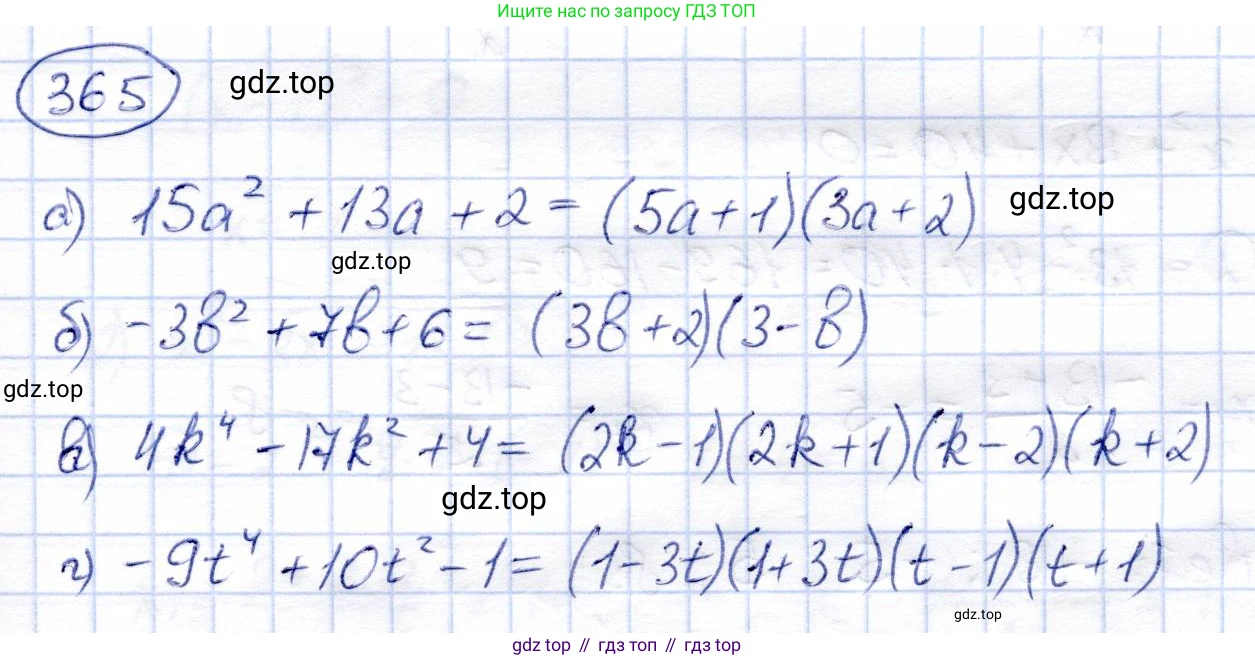 Ищите нас по запросу ГДЗ ТОП
365 gdz.top
а) 15a² + 13a + 2 = (5a + 1)(3a + 2) gdz.top
gdz.top
б) -3b² + 7b + 6 = (3b + 2)(3 - b)
gdz.top
в) 4k⁴ - 17k² + 4 = (2k - 1)(2k + 1)(k - 2)(k + 2)
gdz.top
г) -9t⁴ + 10t² - 1 = (1 - 3t)(1 + 3t)(t - 1)(t + 1)
gdz.top
gdz top // гдз топ // гдз top